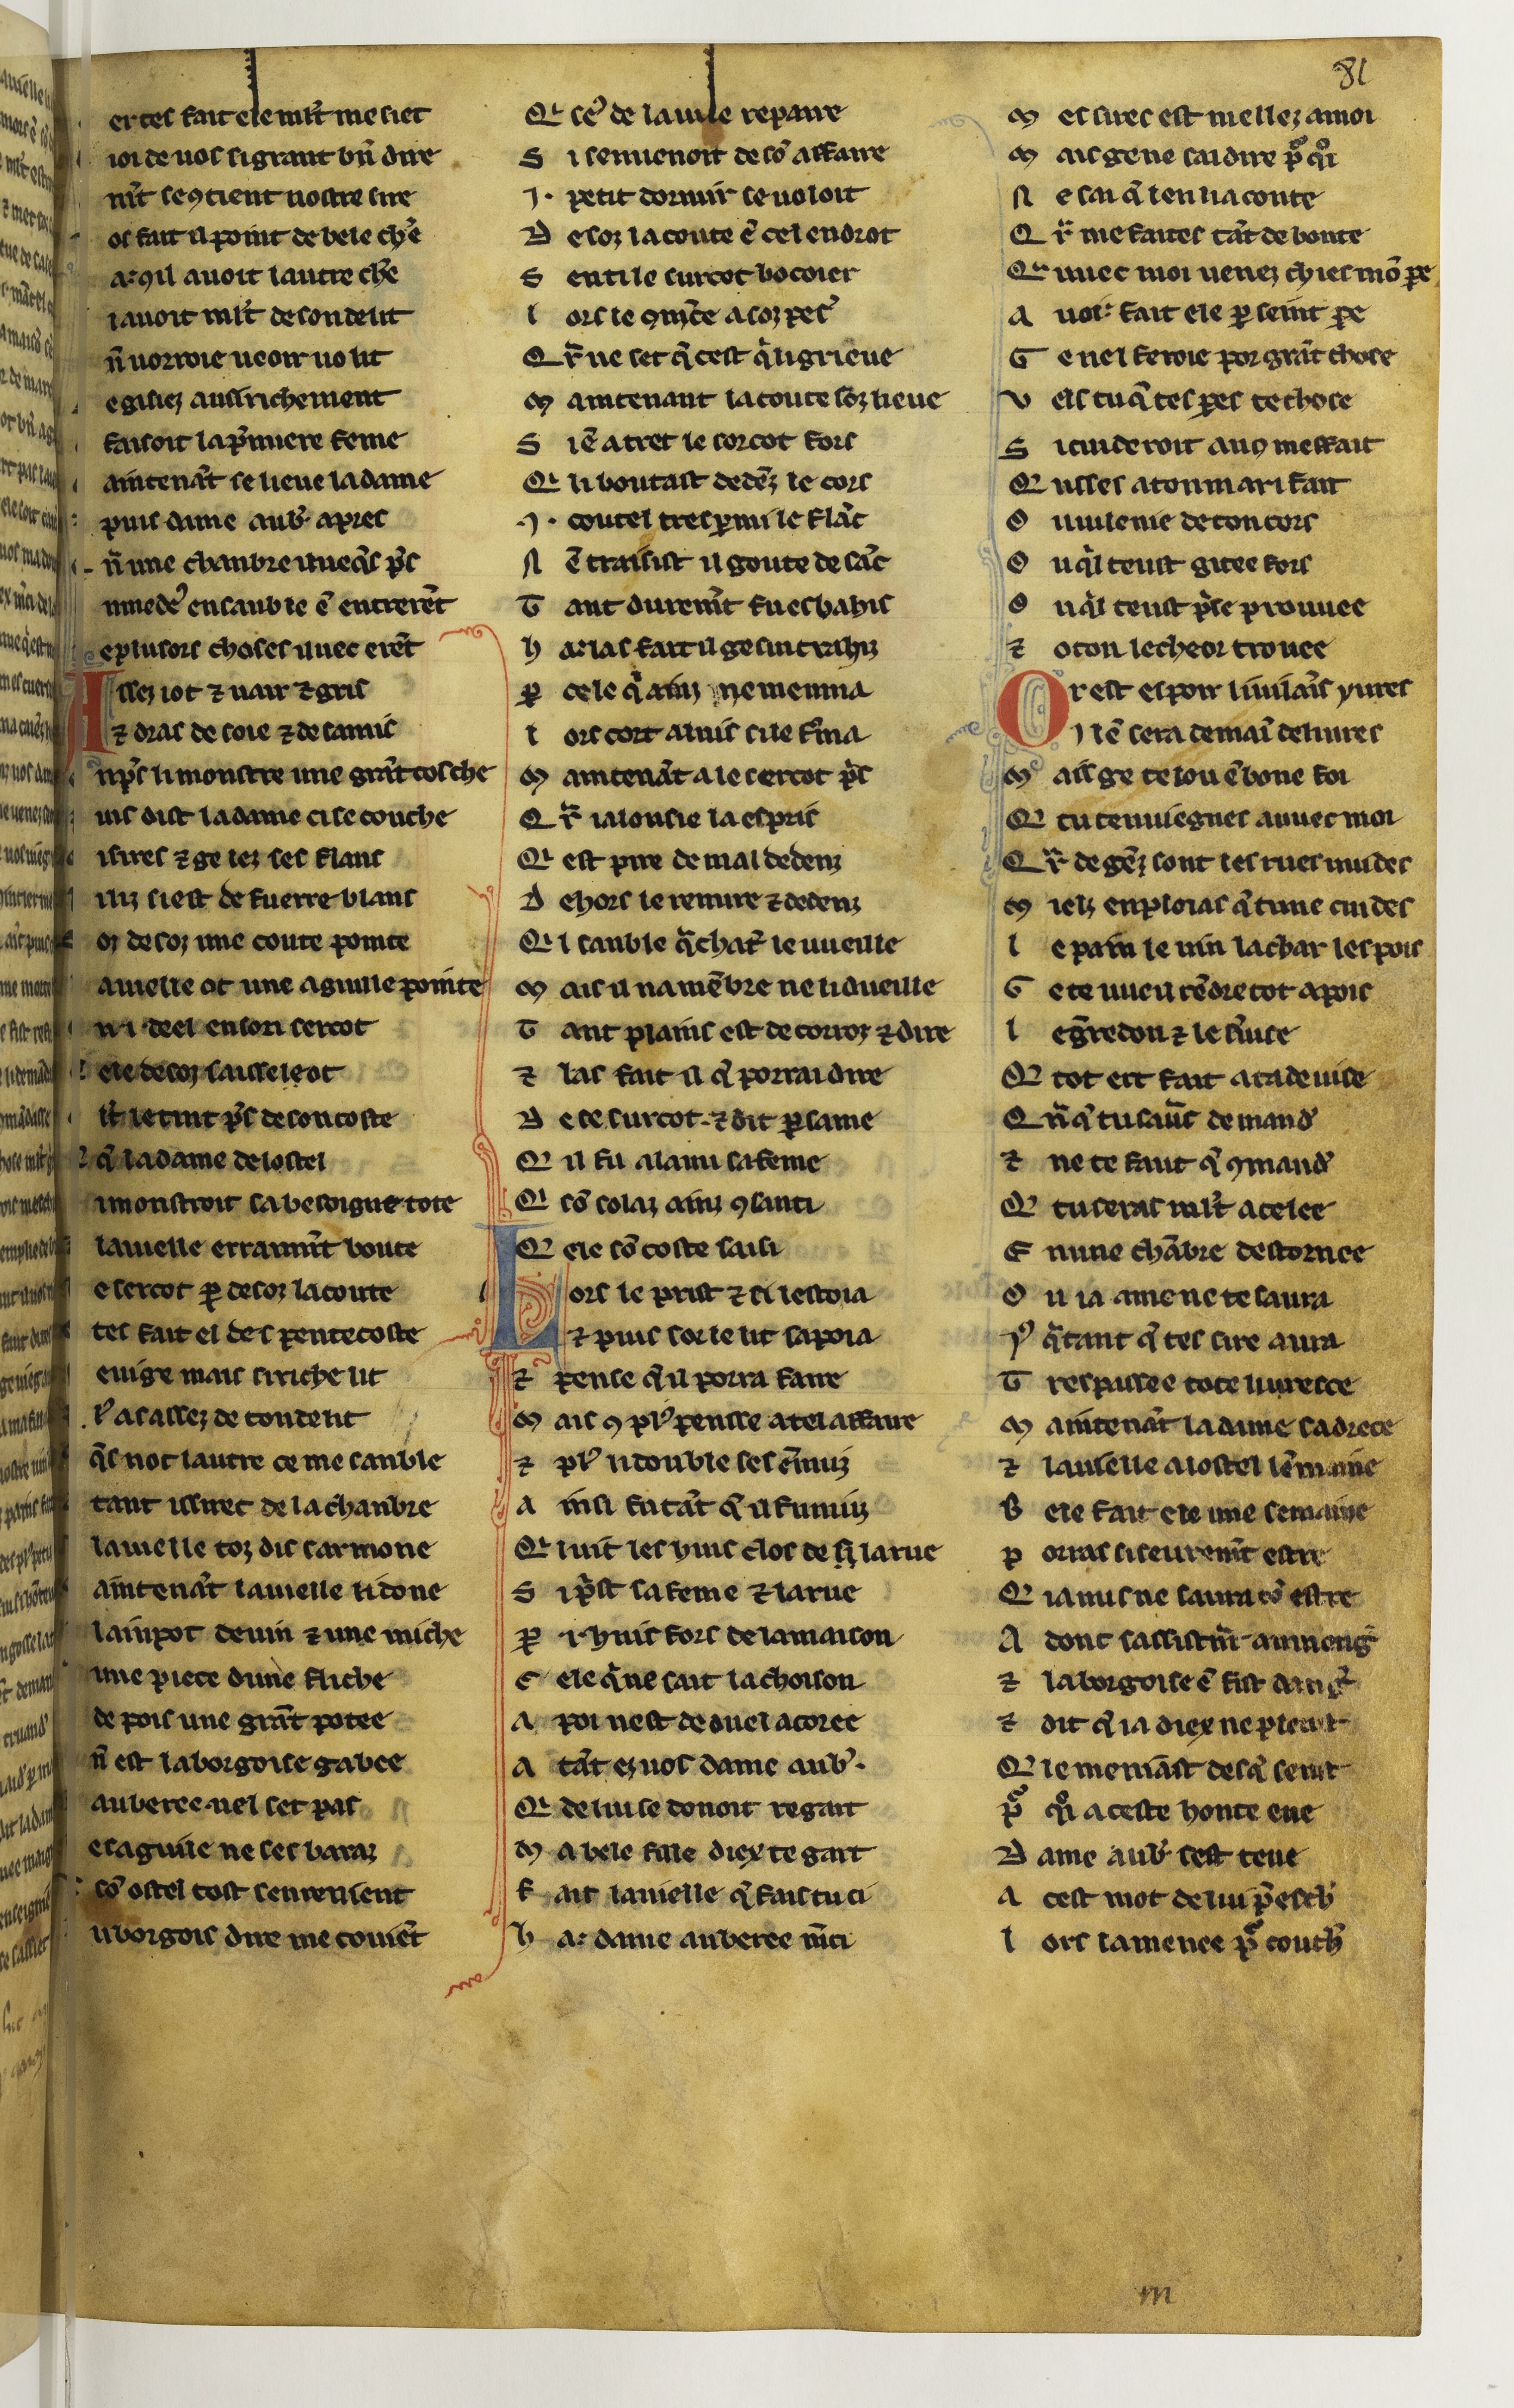 81
ertes fait ele ml̃t me siet
ioi de uos si grant bñ dire
ml̃t se ꝯtient uostre sire
os fait il point de bele chẽ
a. qil auoit lautre chẽ
i auoit ml̃t de son delit
ñ uorroie ueoir uo lit
e gisiez aussi richement
faisoit la pͥmiere feme
aintenãt se lieue la dame
puis dame aub̾ apres
ñ une chanbre iluec̃s pͥs
e plusors choses iluec erẽt
Assez i ot ⁊ uair ⁊ gris
⁊ dras de soie ⁊ de samis
np̾s li monstre une grãt cosche
uis dist la dame ci se couche
i sires ⁊ ge lez ses flans
liz si est de fuerre blans
or desoz une coute pointe
auielle ot une aguille pointe
n .i. deel en son sercot
ele desoz saisselle ot
ml̃t le tint p̾s de son coste
q̃ la dame de lostel
i monstroit sa besoigne tote
la uielle erranm̃t boute
e sercot ꝑ desoz la coute
tes fait el des pentecoste
e ui ge mais si riche lit
pl̾ as assez de ton delit
q̃s not lautre ce me sanble
tant issirec de la chanbre
la uielle toz dis sarmone
aintenãt la uielle li done
lain pot de uin ⁊ une miche
une piece dune fliche
de pois une grãt potee
ñ est la borgoise gabee
auberee nel set pas
e saguille ne ses baraz
sõ ostel tost sen reuient
u borgois dire me couiẽt
Et se̾ de la uile repaire
Si se uienoit de sõ affaire
.I. petit dormir se uoloit
Desoz la coute ẽ cel endrot
Senti le surcot bocoier
lors le ꝯmẽce a soz peser̾
Qr̃ ne set q̃ cest q̃ li grieue
Maintenant la coute sõz lieue
Siẽ a tret le sorcot fors
Qi li boutast dedẽz le cors
.I. coutel tres ꝑmi le flãc
Nẽ traisist il goute de sãc
Tant durem̃t fu esbahis
ha las fait il ge sui trahiz
ꝑ cele q̃ ainz ne mema
lors cort a luis si le ferma
Maintenãt a le sercot pͥs
Qr̃ ialousie la espris
Qi est pire de mal dedenz
Dehors le remire ⁊ dedenz
Qi sanble q̃ chat̃ le uueille
Mais il na mẽbre ne li dueille
Tant plains est de corroz ⁊ dire
⁊ las fait il q̃ porrai dire
De ce surcot. ⁊ dit ꝑ same
Qil fu a lami sa feme
Q sõ solaz ainz ꝯsanti
Q ele sõ coste saisi
Lors le prist ⁊ si lestoia
⁊ puis sor le lit sapoia
⁊ pense q̃ il porra faire
Mais ꝯ pl̾ pensse a tel affaire
⁊ pl̾ li double ses ẽnuiz
Ainsi fu tãt q̃ il fu nuiz
Si pͥst sa feme ⁊ la rue
ꝑ .i. huis fors de la maison
Cele q̃ ne sait lachoison
A poi nest de duel acoree
A tãt ez uos dame aub̾.
Qi de lui se donoit regart
Ma bele fille diex te gart
Fait la uielle q̃ fais tu ci
ha. dame auberee m̃ci
Mes sires est mellez a moi
Mais ge ne sai dire p̾ quoi
Ne sai q̃ len li a conte
Qr̃ me faites tãt de bonte
Quuec moi uenez chies mõ pe
Auoi. fait ele ꝑ seint pe
Ge nel feroie por grãt chose
Vels tu q̃ tes peres te chose
Si cuideroit au9 meffait
Qusses a ton mari fait
Ou uilenie de ton cors
Ou q̃l teust gitee fors
Ou q̃l teust p̾se prouuee
⁊ o ton lecheor trouee
Or est espoir li uilais yures
Il lẽ sera demai deliures
Mais ge te lou ẽ bone foi
Q tu ten uiegnes auuec moi
Qr̃ de gẽz sont les rues uuides
Mielz enploias q̃ tu ne cuides
le pain le uin la char les pois
Ge te uueil rẽdre tot a pois
Q tot ert fait a ta deuise
⁊ ne te faut q̃ ꝯmand̾
Q tu seras ml̃t a celee
En une chãbre destornee
Ou ia ame ne te saura
q̃tant q̃ tes sire aura
Trespassee tote liuresce
Maintenãt la dame sadrece
⁊ la uielle a lostel lẽmaine
Bele fait ele une semaine
Porras si seurem̃t estre
Q ia nus ne saura tõ estre
Adonc sassistr̃nt au meng̾
⁊ la borgoise ẽ fist dang̾
⁊ dit q̃ ia diex ne pleust
Q le meniast desq̃ seust
p̾ quoi a ceste honte eue
Dame aub̾ sest teue
A cest mot de lui p̃eschr̃
lors la menee p̾ couch̾
m